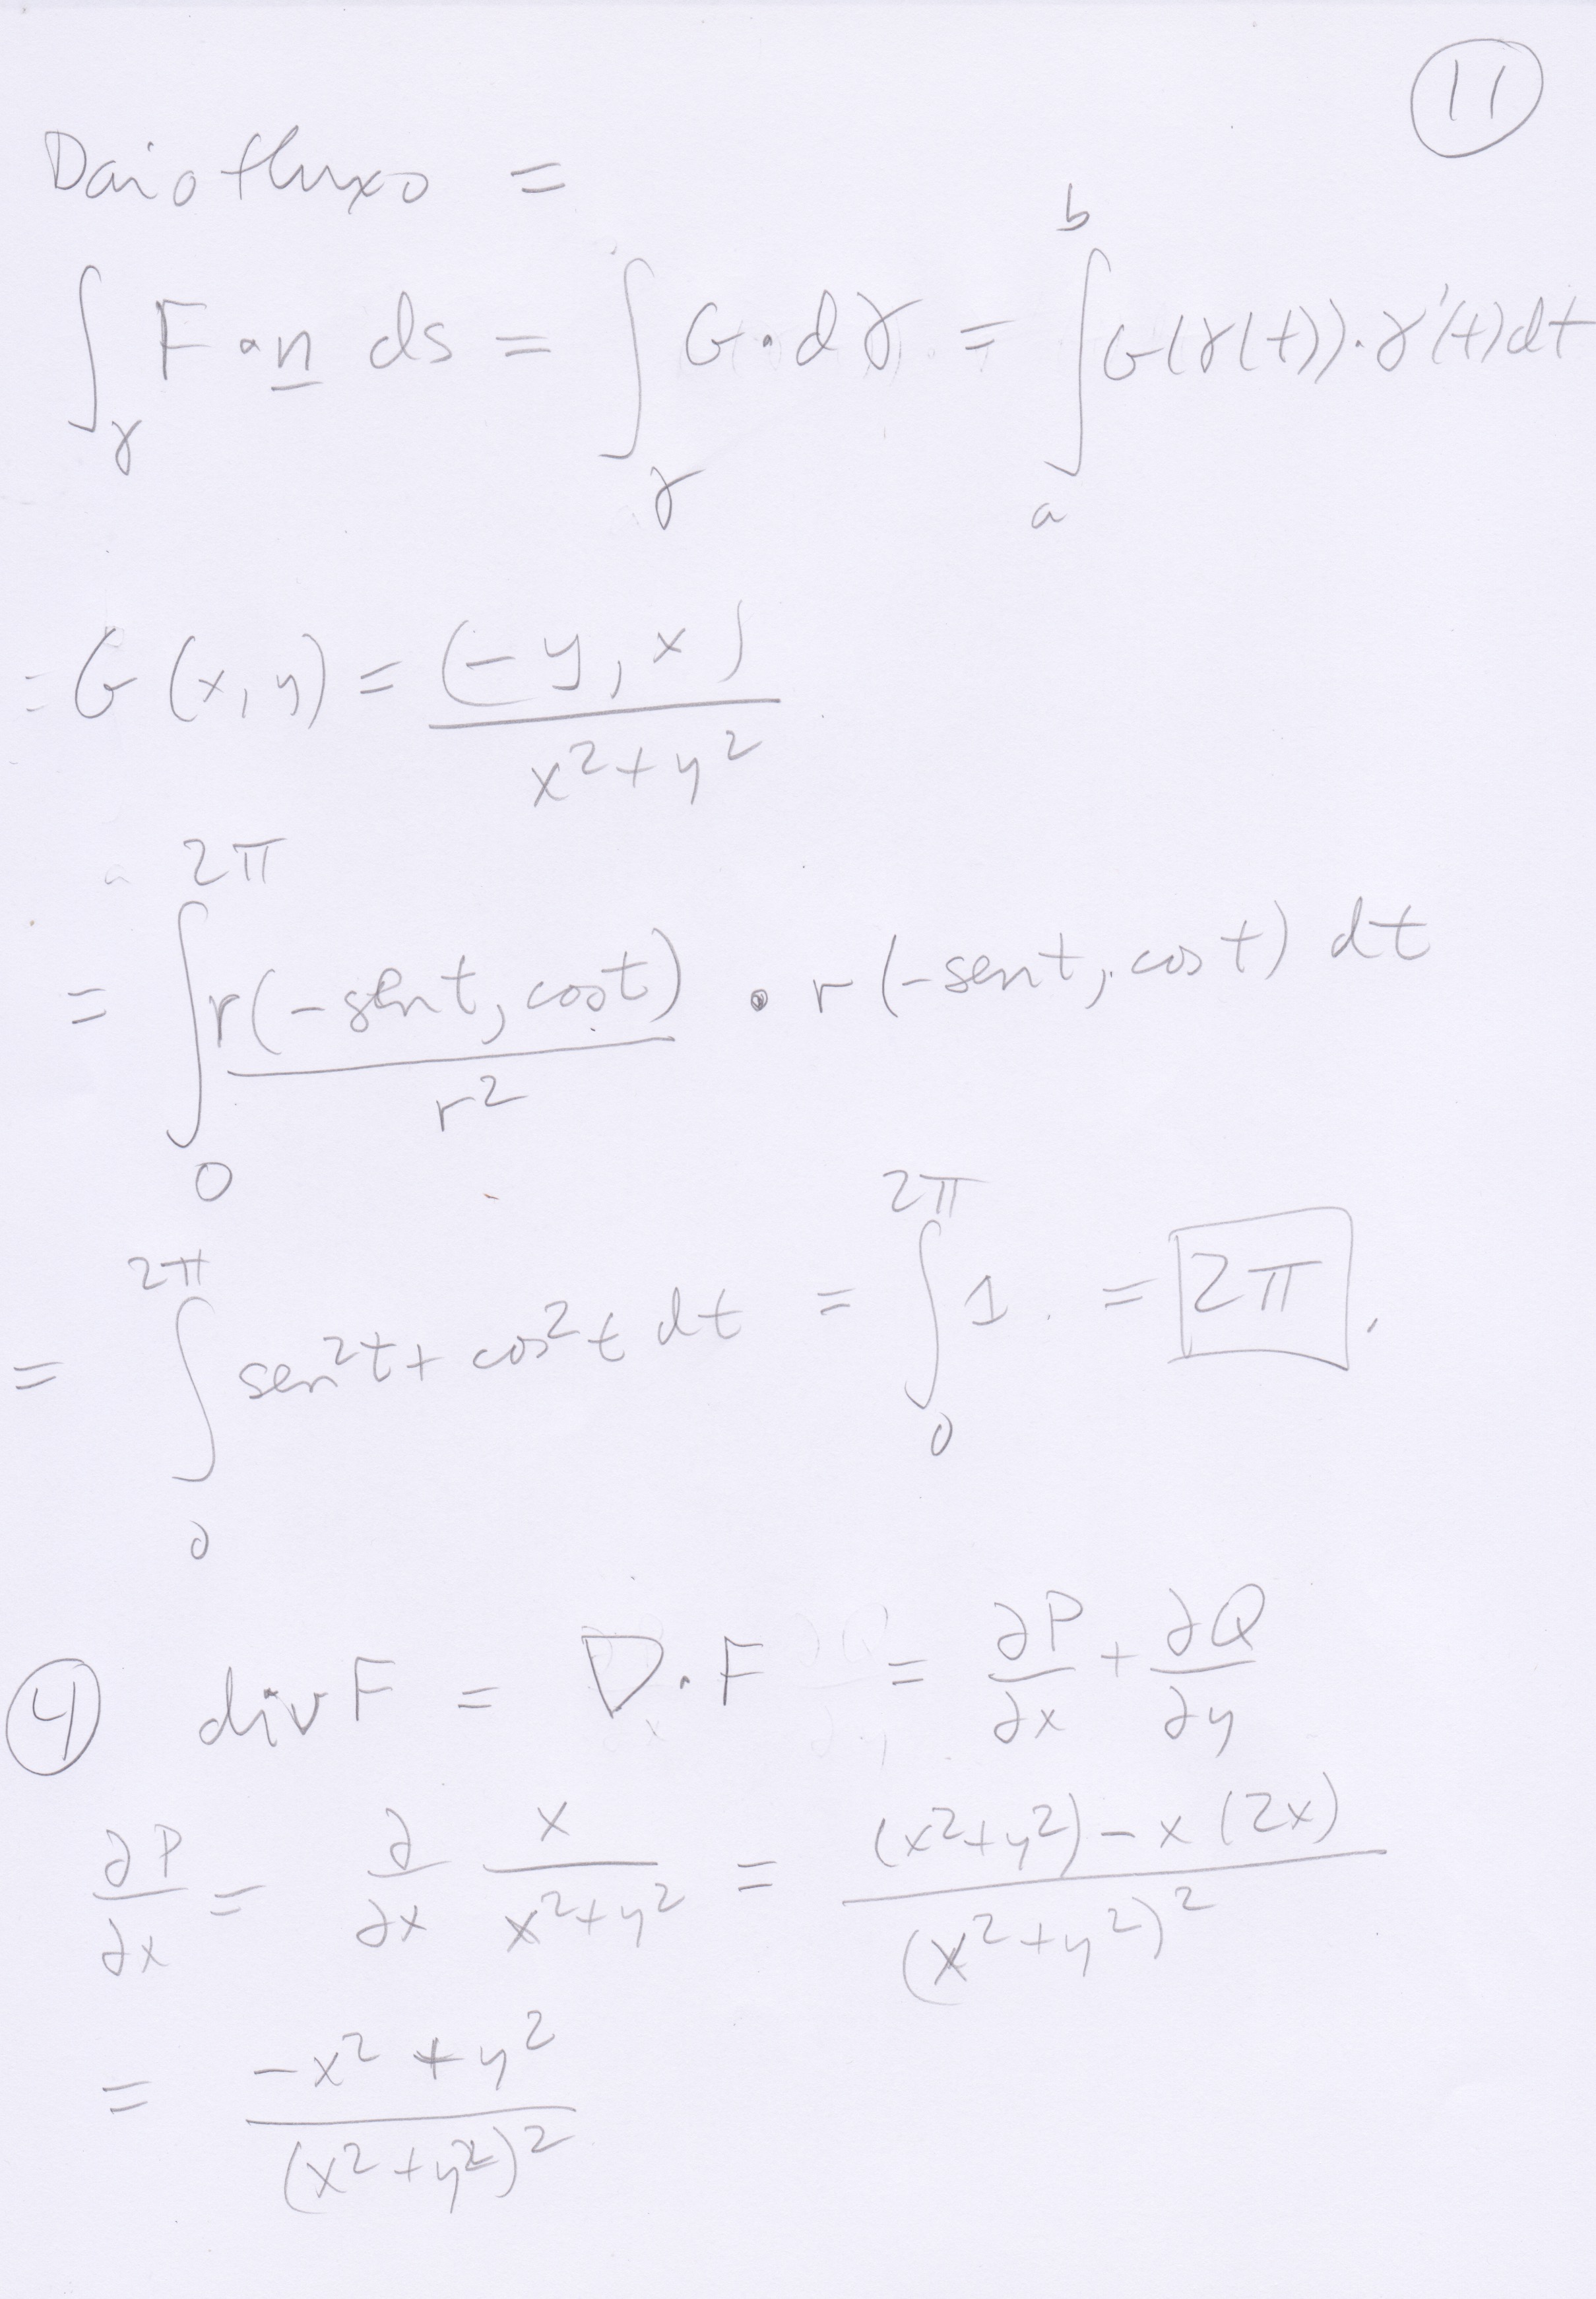 11
Daí o fluxo =
∫_γ F · n ds = ∫_γ G · dγ = ∫_a^b G(γ(t)) · γ'(t) dt
= G(x, y) = (-y, x) / (x² + y²)
= ∫_0^{2π} r(-sen t, cos t) / r² · r(-sen t, cos t) dt
= ∫_0^{2π} sen²t + cos²t dt = ∫_0^{2π} 1 . = 2π .
④ div F = ∇ · F = ∂P/∂x + ∂Q/∂y
∂P/∂x = ∂/∂x x / (x² + y²) = ((x² + y²) - x(2x)) / (x² + y²)²
= (-x² + y²) / (x² + y²)²